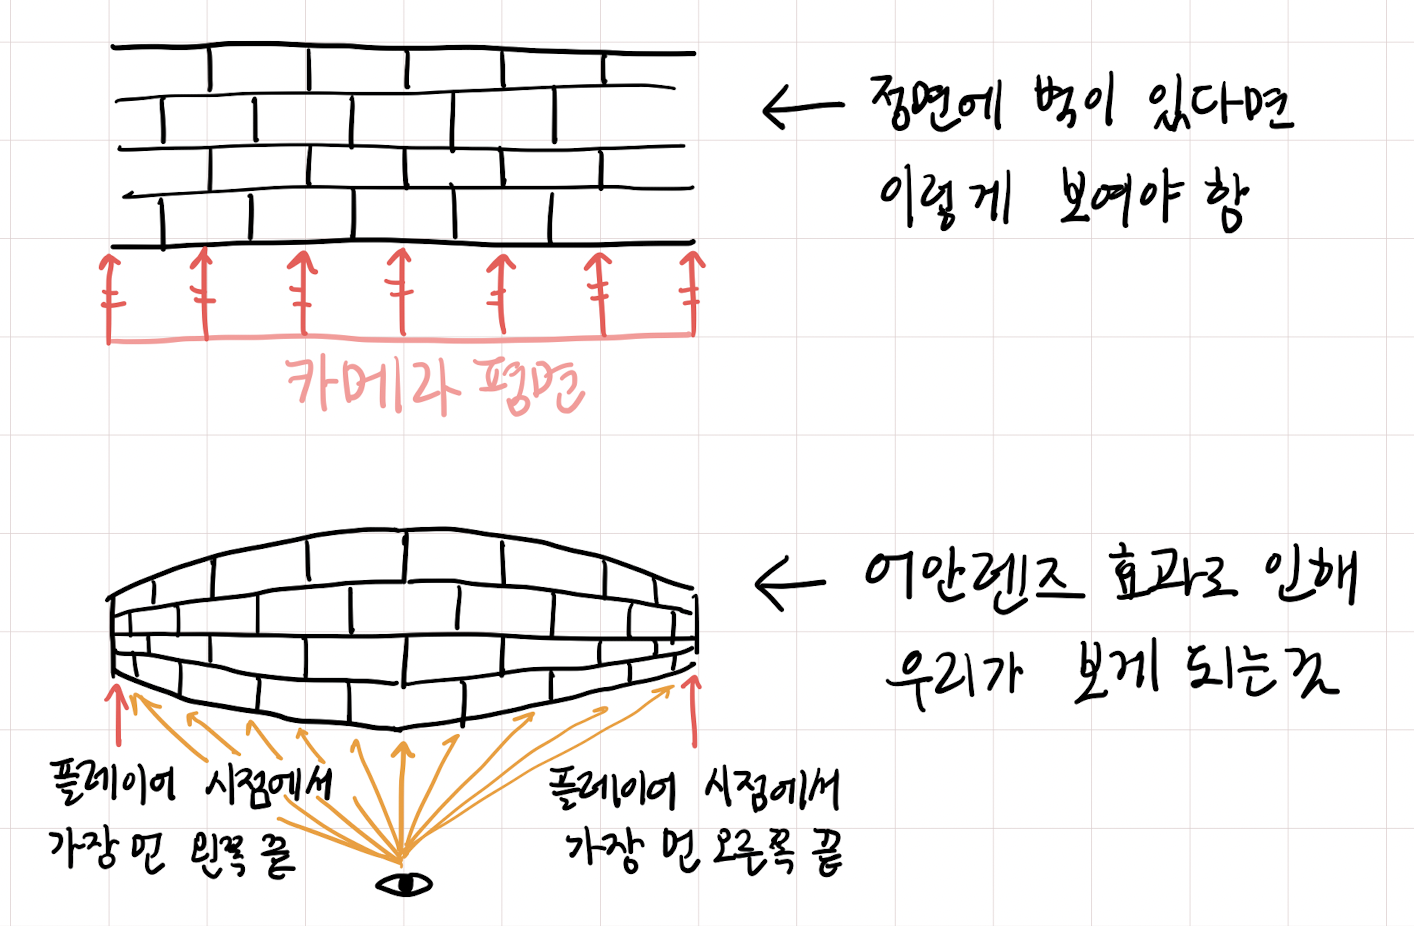 정면에 벽이 있다면
이렇게 보여야 함
카메라 평면
어안렌즈 효과로 인해
우리가 보게 되는것
플레이어 시점에서
가장 먼 왼쪽 끝
플레이어 시점에서
가장 먼 오른쪽 끝